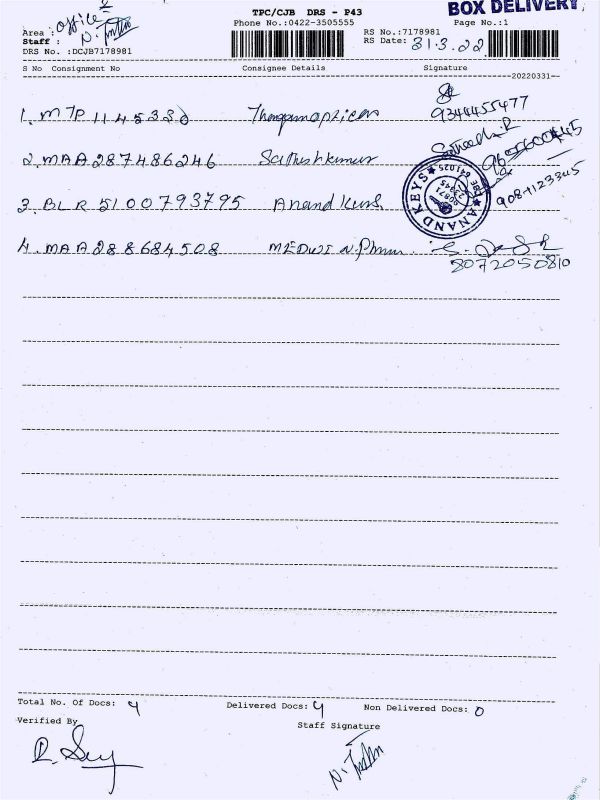 BOX DELIVERY
TPC/CJB DRS - P43
Phone No.:0422-3505555
Page No.:1
Area : Office 2
Staff :
DRS No. :DCJB7178981
RS No.:7178981
RS Date: 31.3.22
S No Consignment No Consignee Details Signature
20220331
1. MTP 1145330
9344455477
2. MAA 287486246 Sathishkumar
3. BLR 5100793795 Anand Keys
9087123345
ANAND KEYS
641025
4. MAA 288684508
8072050810
Total No. Of Docs: 4 Delivered Docs: 4 Non Delivered Docs: 0
Verified By
Staff Signature